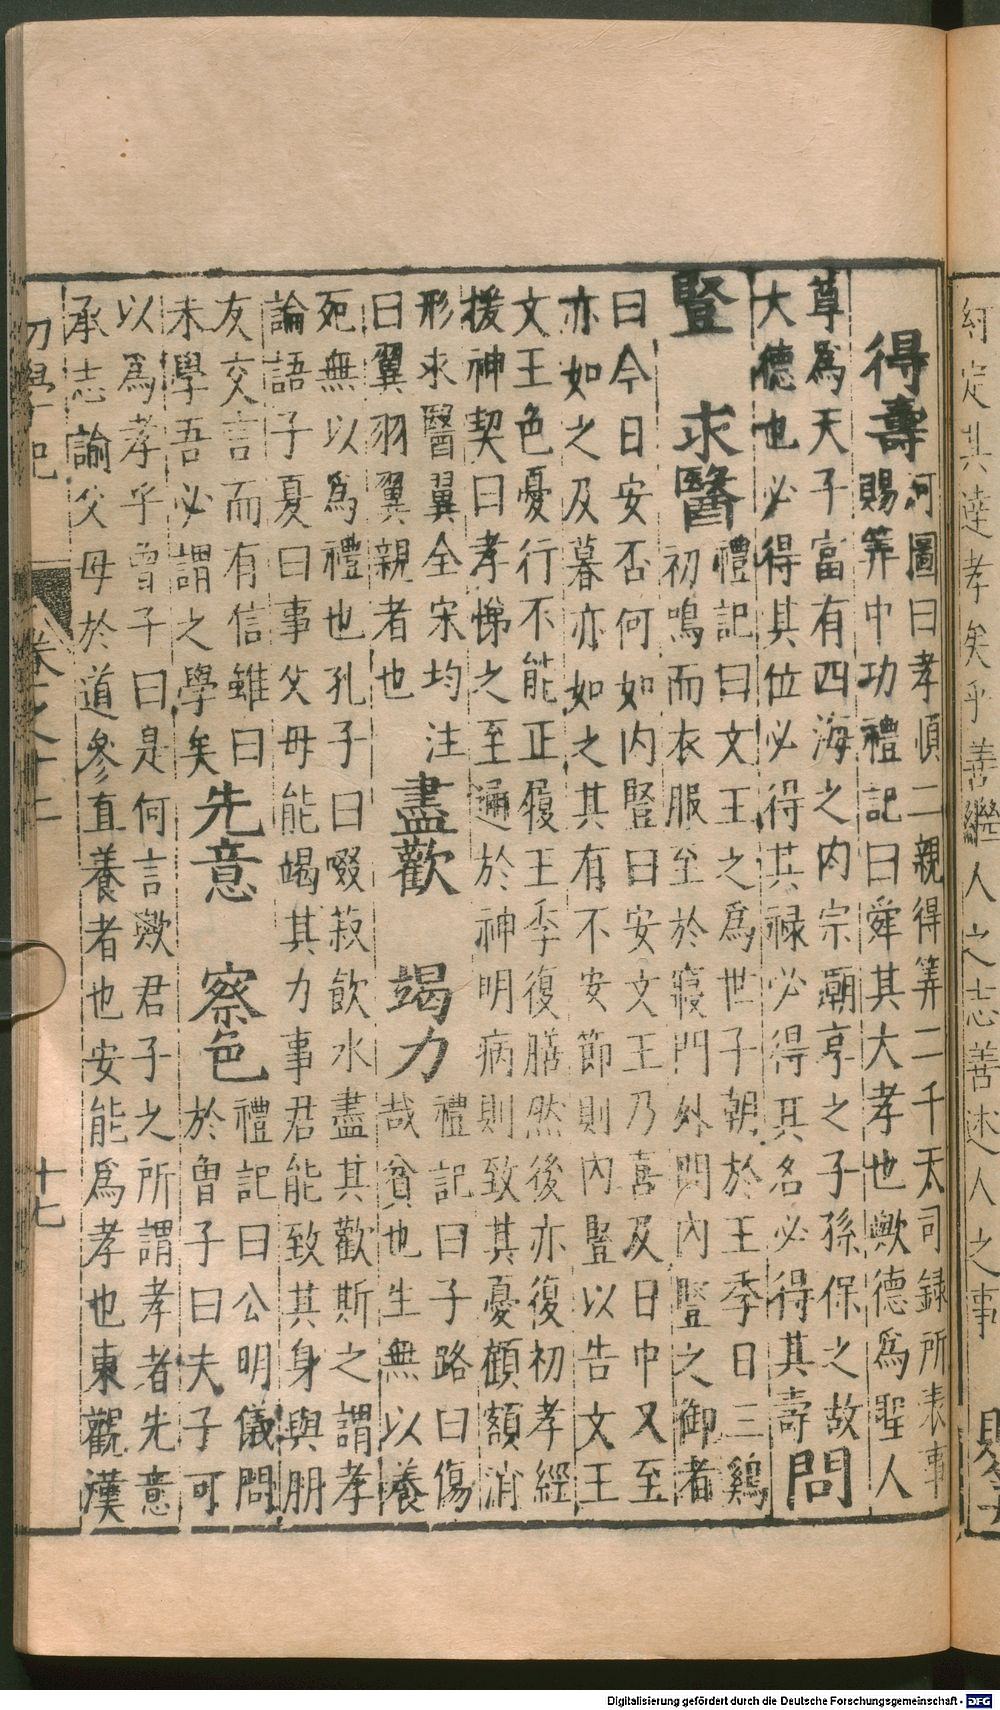 定其達孝矣乎善繼人之志善述人之事
得壽
河圖曰孝順二親得筭二千天司録所表事
賜筭中功禮記曰舜其大孝也歟德爲聖人
尊爲天子富有四海之内宗廟享之子孫保之故
大德也必得其位必得其禄必得其名必得其壽
問
豎 求醫
禮記曰文王之爲世子朝於王季日三鷄
初鳴而衣服至於寢門外問内豎之御者
曰今日安否何如内豎曰安文王乃喜及日中又至
亦如之及暮亦如之其有不安節則内豎以告文王
文王色憂行不能正履王季復膳然後亦復初孝經
援神契曰孝悌之至通於神明病則致其憂顧額消
形求醫翼全宋均注
曰翼羽翼親者也
盡歡 竭力
禮記曰子路曰傷
哉貧也生無以養
死無以爲禮也孔子曰啜菽飲水盡其歡斯之謂孝
論語子夏曰事父母能竭其力事君能致其身與朋
友交言而有信雖曰
未學吾必謂之學矣
先意 察色
禮記曰公明儀問
於曾子曰夫子可
以爲孝乎曾子曰是何言歟君子之所謂孝者先意
承志諭父母於道參直養者也安能爲孝也東觀漢
初學記 卷之十 十七
Digitalisierung gefördert durch die Deutsche Forschungsgemeinschaft - DFG